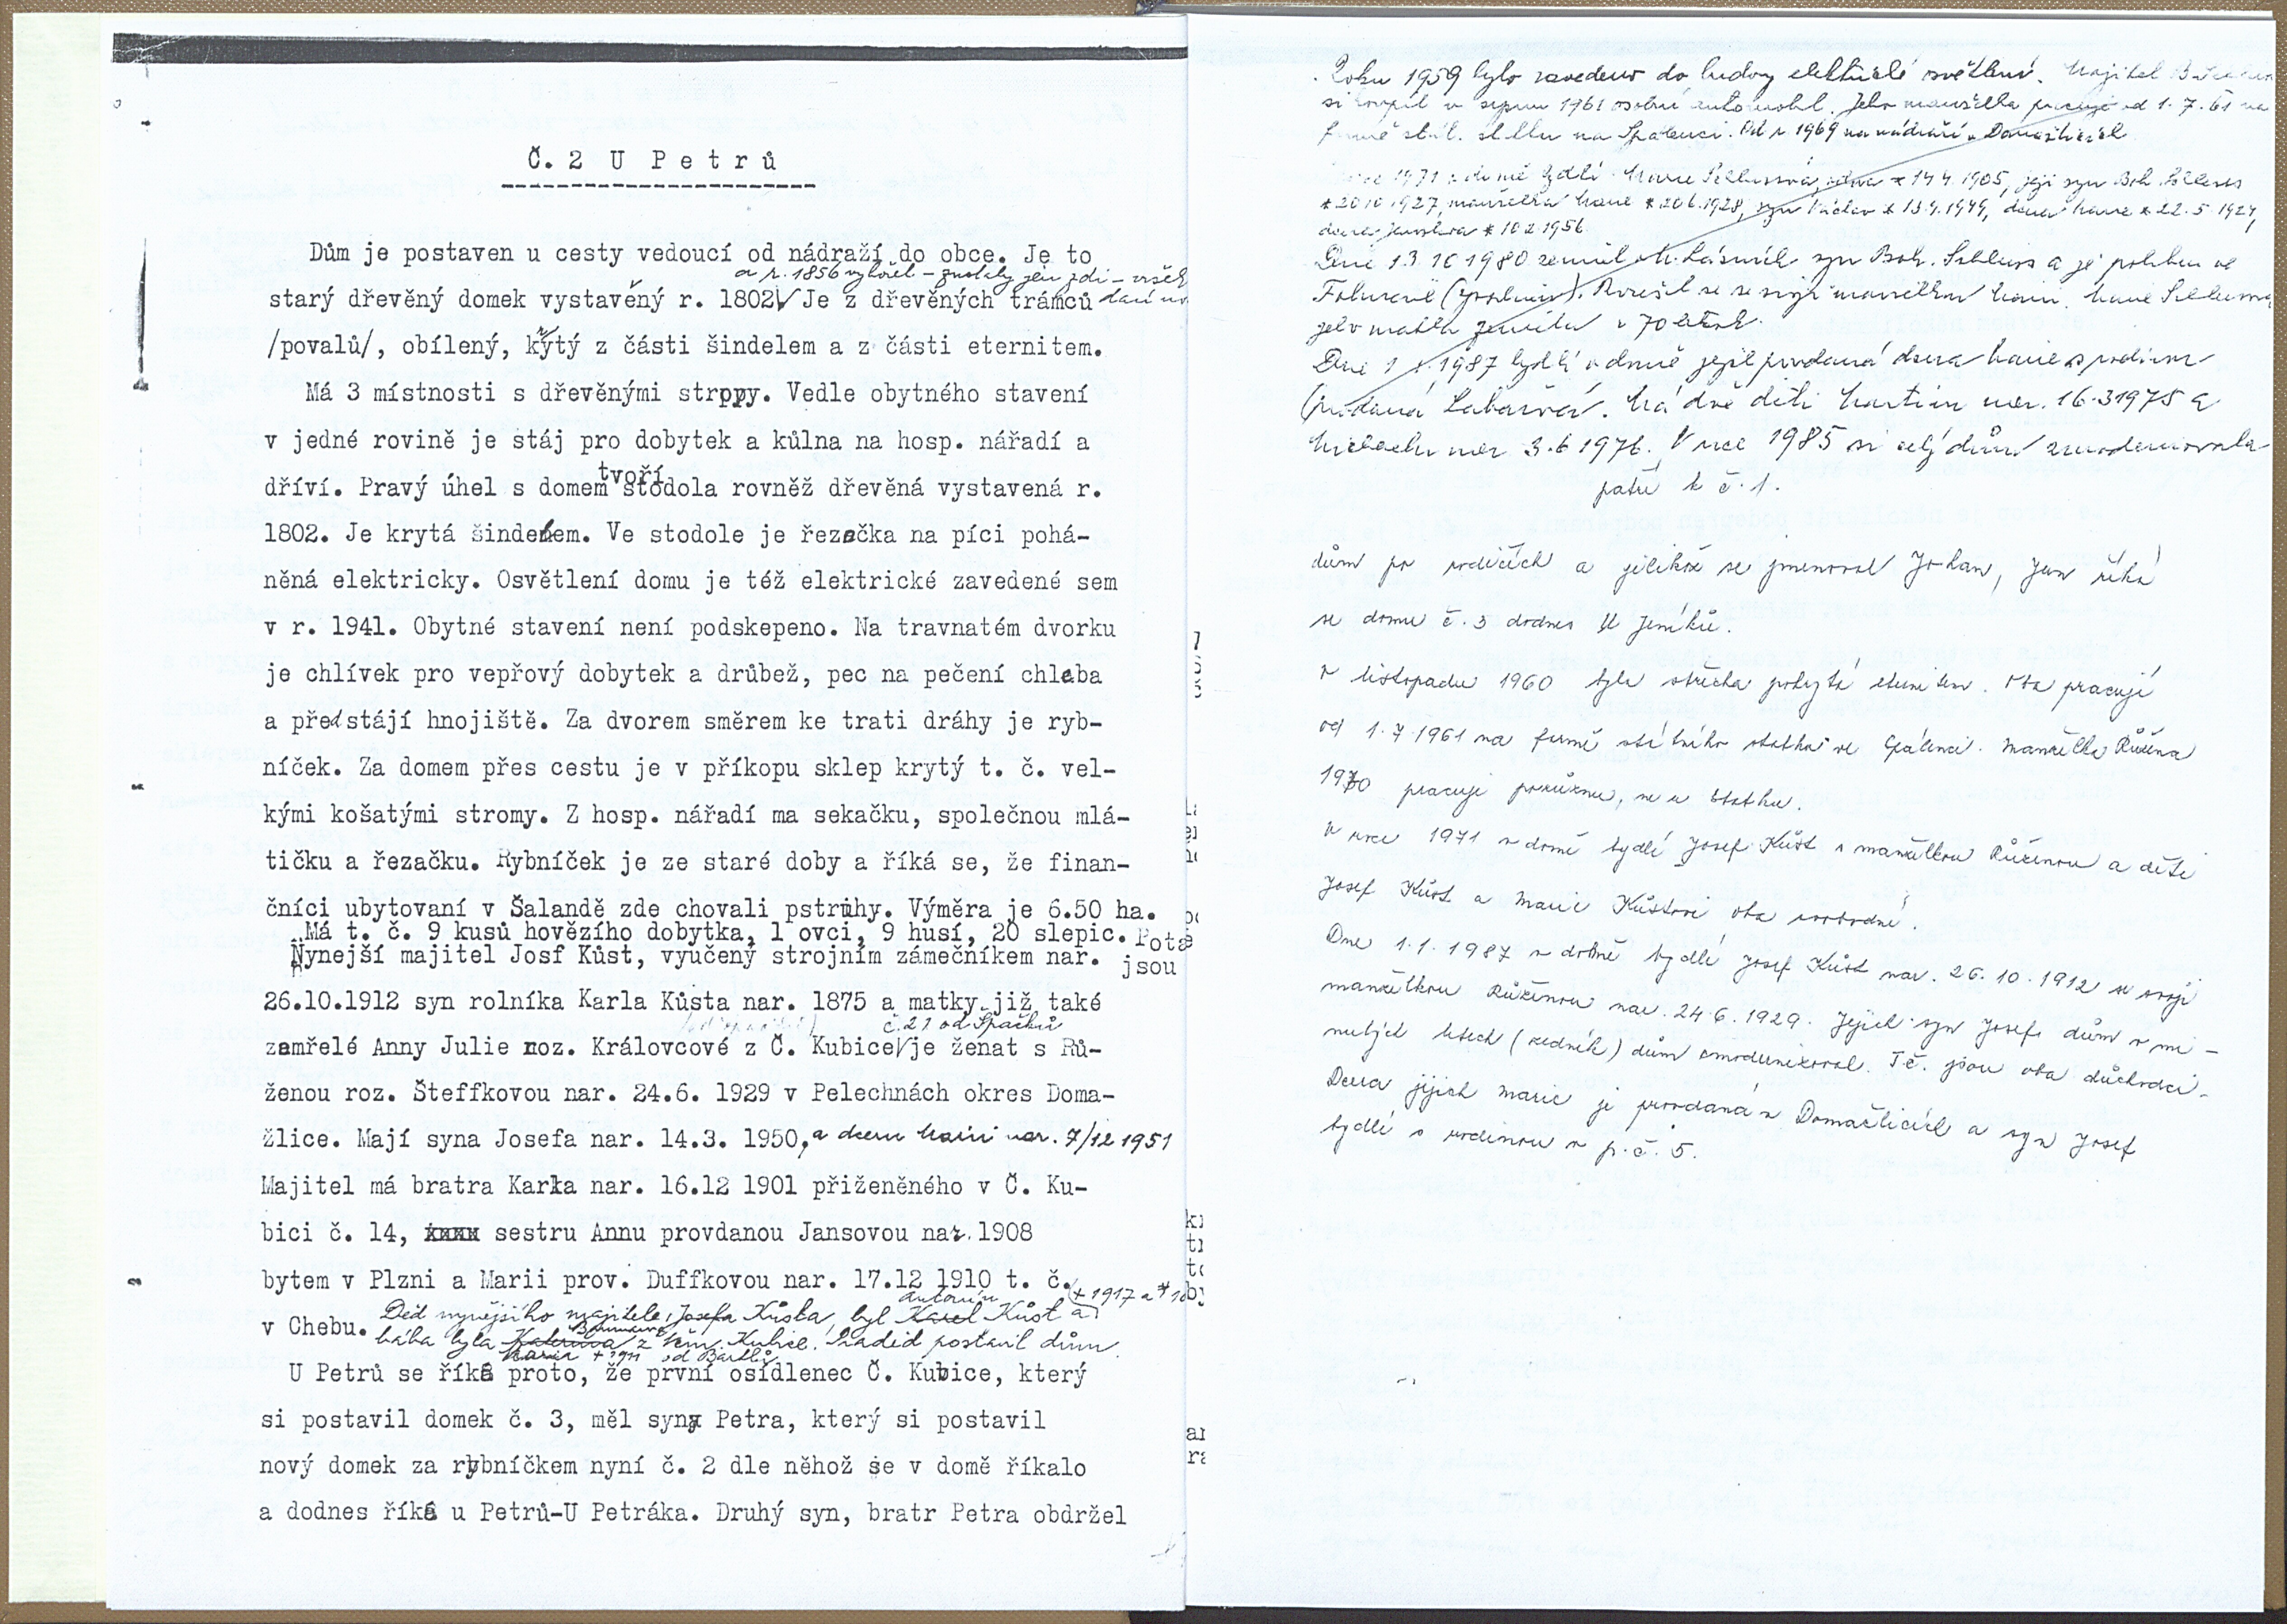 Č. 2 U Petrů
Dům je postaven u cesty vedoucí od nádraží do obce. Je to
a r. 1856 vyhořel - zůstaly jen zdi -
starý dřevěný domek vystavěný r. 1802. Je z dřevěných trámců
/povalů/, obílený, krytý z části šindelem a z části eternitem.
Má 3 místnosti s dřevěnými stropy. Vedle obytného stavení
v jedné rovině je stáj pro dobytek a kůlna na hosp. nářadí a
tvoří
dříví. Pravý úhel s domem stodola rovněž dřevěná vystavená r.
1802. Je krytá šindelem. Ve stodole je řezačka na píci pohá-
něná elektricky. Osvětlení domu je též elektrické zavedené sem
v r. 1941. Obytné stavení není podskepeno. Na travnatém dvorku
je chlívek pro vepřový dobytek a drůbež, pec na pečení chleba
a před stájí hnojiště. Za dvorem směrem ke trati dráhy je ryb-
níček. Za domem přes cestu je v příkopu sklep krytý t. č. vel-
kými košatými stromy. Z hosp. nářadí ma sekačku, společnou mlá-
tičku a řezačku. Rybníček je ze staré doby a říká se, že finan-
čníci ubytovaní v Šalandě zde chovali pstruhy. Výměra je 6.50 ha.
Má t. č. 9 kusů hovězího dobytka, 1 ovci, 9 husí, 20 slepic.
Nynejší majitel Josf Kůst, vyučený strojním zámečníkem nar.
jsou
26.10.1912 syn rolníka Karla Kůsta nar. 1875 a matky již také
č. 21 od Špačků
zemřelé Anny Julie roz. Královcové z Č. Kubice je ženat s Rů-
ženou roz. Šteffkovou nar. 24.6. 1929 v Pelechnách okres Doma-
žlice. Mají syna Josefa nar. 14.3. 1950, a dceru Marii nar. 7/12 1951
Majitel má bratra Karla nar. 16.12 1901 přiženěného v Č. Ku-
bici č. 14, xxxx sestru Annu provdanou Jansovou nar. 1908
bytem v Plzni a Marii prov. Duffkovou nar. 17.12 1910 t. č.
Antonín
v Chebu. Děd nynějšího majitele, Josefa Kůsta, byl Karel Kůst a
bába byla Kateřina z Čes. Kubice. Praděd postavil dům.
Marie + 1911 od Bartlů
U Petrů se říká proto, že první osídlenec Č. Kubice, který
si postavil domek č. 3, měl syna Petra, který si postavil
nový domek za rybníčkem nyní č. 2 dle něhož se v domě říkalo
a dodnes říká u Petrů-U Petráka. Druhý syn, bratr Petra obdržel
Roku 1959 bylo zavedeno do budovy elektrické osvětlení. Majitel
si koupil v srpnu 1961 osobní automobil. Jeho manželka pracuje od 1. 7. 61 na
farmě stát. statku na Spálenci. Od r. 1969 na nádraží v Domažlicích
1971 v domě bydlí Marie * 14 4. 1905, její syn Boh.
* 20 10 1927, manželka Marie * 20 6. 1928, syn Václav * 13. 9. 1949, dcera Marie
dcera * 10 2. 1956
Dne 13 10 1980 zemřel syn Boh. a je pohřben ve
Rozešel se se svojí manželkou Marií.
jeho matka zemřela v 70 letech.
Dne 1 1. 1987 bydlí v domě jejich provdaná dcera Marie s rodinou
Má dvě děti Martin nar. 16. 3 1975 a
Michaelu nar 3. 6 1976. V roce 1985 si celý dům zmodernisovala
patří k č. 1.
dům po rodičích a jelikož se jmenoval Johan, Jan říká
se domu č. 3 dodnes U Jeníků.
V listopadu 1960 byla střecha pokrytá eternitem. Oba pracují
od 1. 7 1961 na farmě státního statku ve Spálenci. Manželka Růžena
1970 pracuje ve statku.
V roce 1971 v domě bydlí Josef Kůst s manželkou Růženou a děti
Josef Kůst a Marie Kůstová oba svobodné.
Dne 1. 1. 1987 v domě bydlí Josef Kůst nar. 26. 10. 1912 se svojí
manželkou Růženou nar. 24. 6. 1929. Jejich syn Josef dům v mi-
nulých letech (zedník) dům zmodernizoval. T. č. jsou oba důchodci.
Dcera jejich Marie je provdaná v Domažlicích a syn Josef
bydlí s rodinou v p. č. 5.